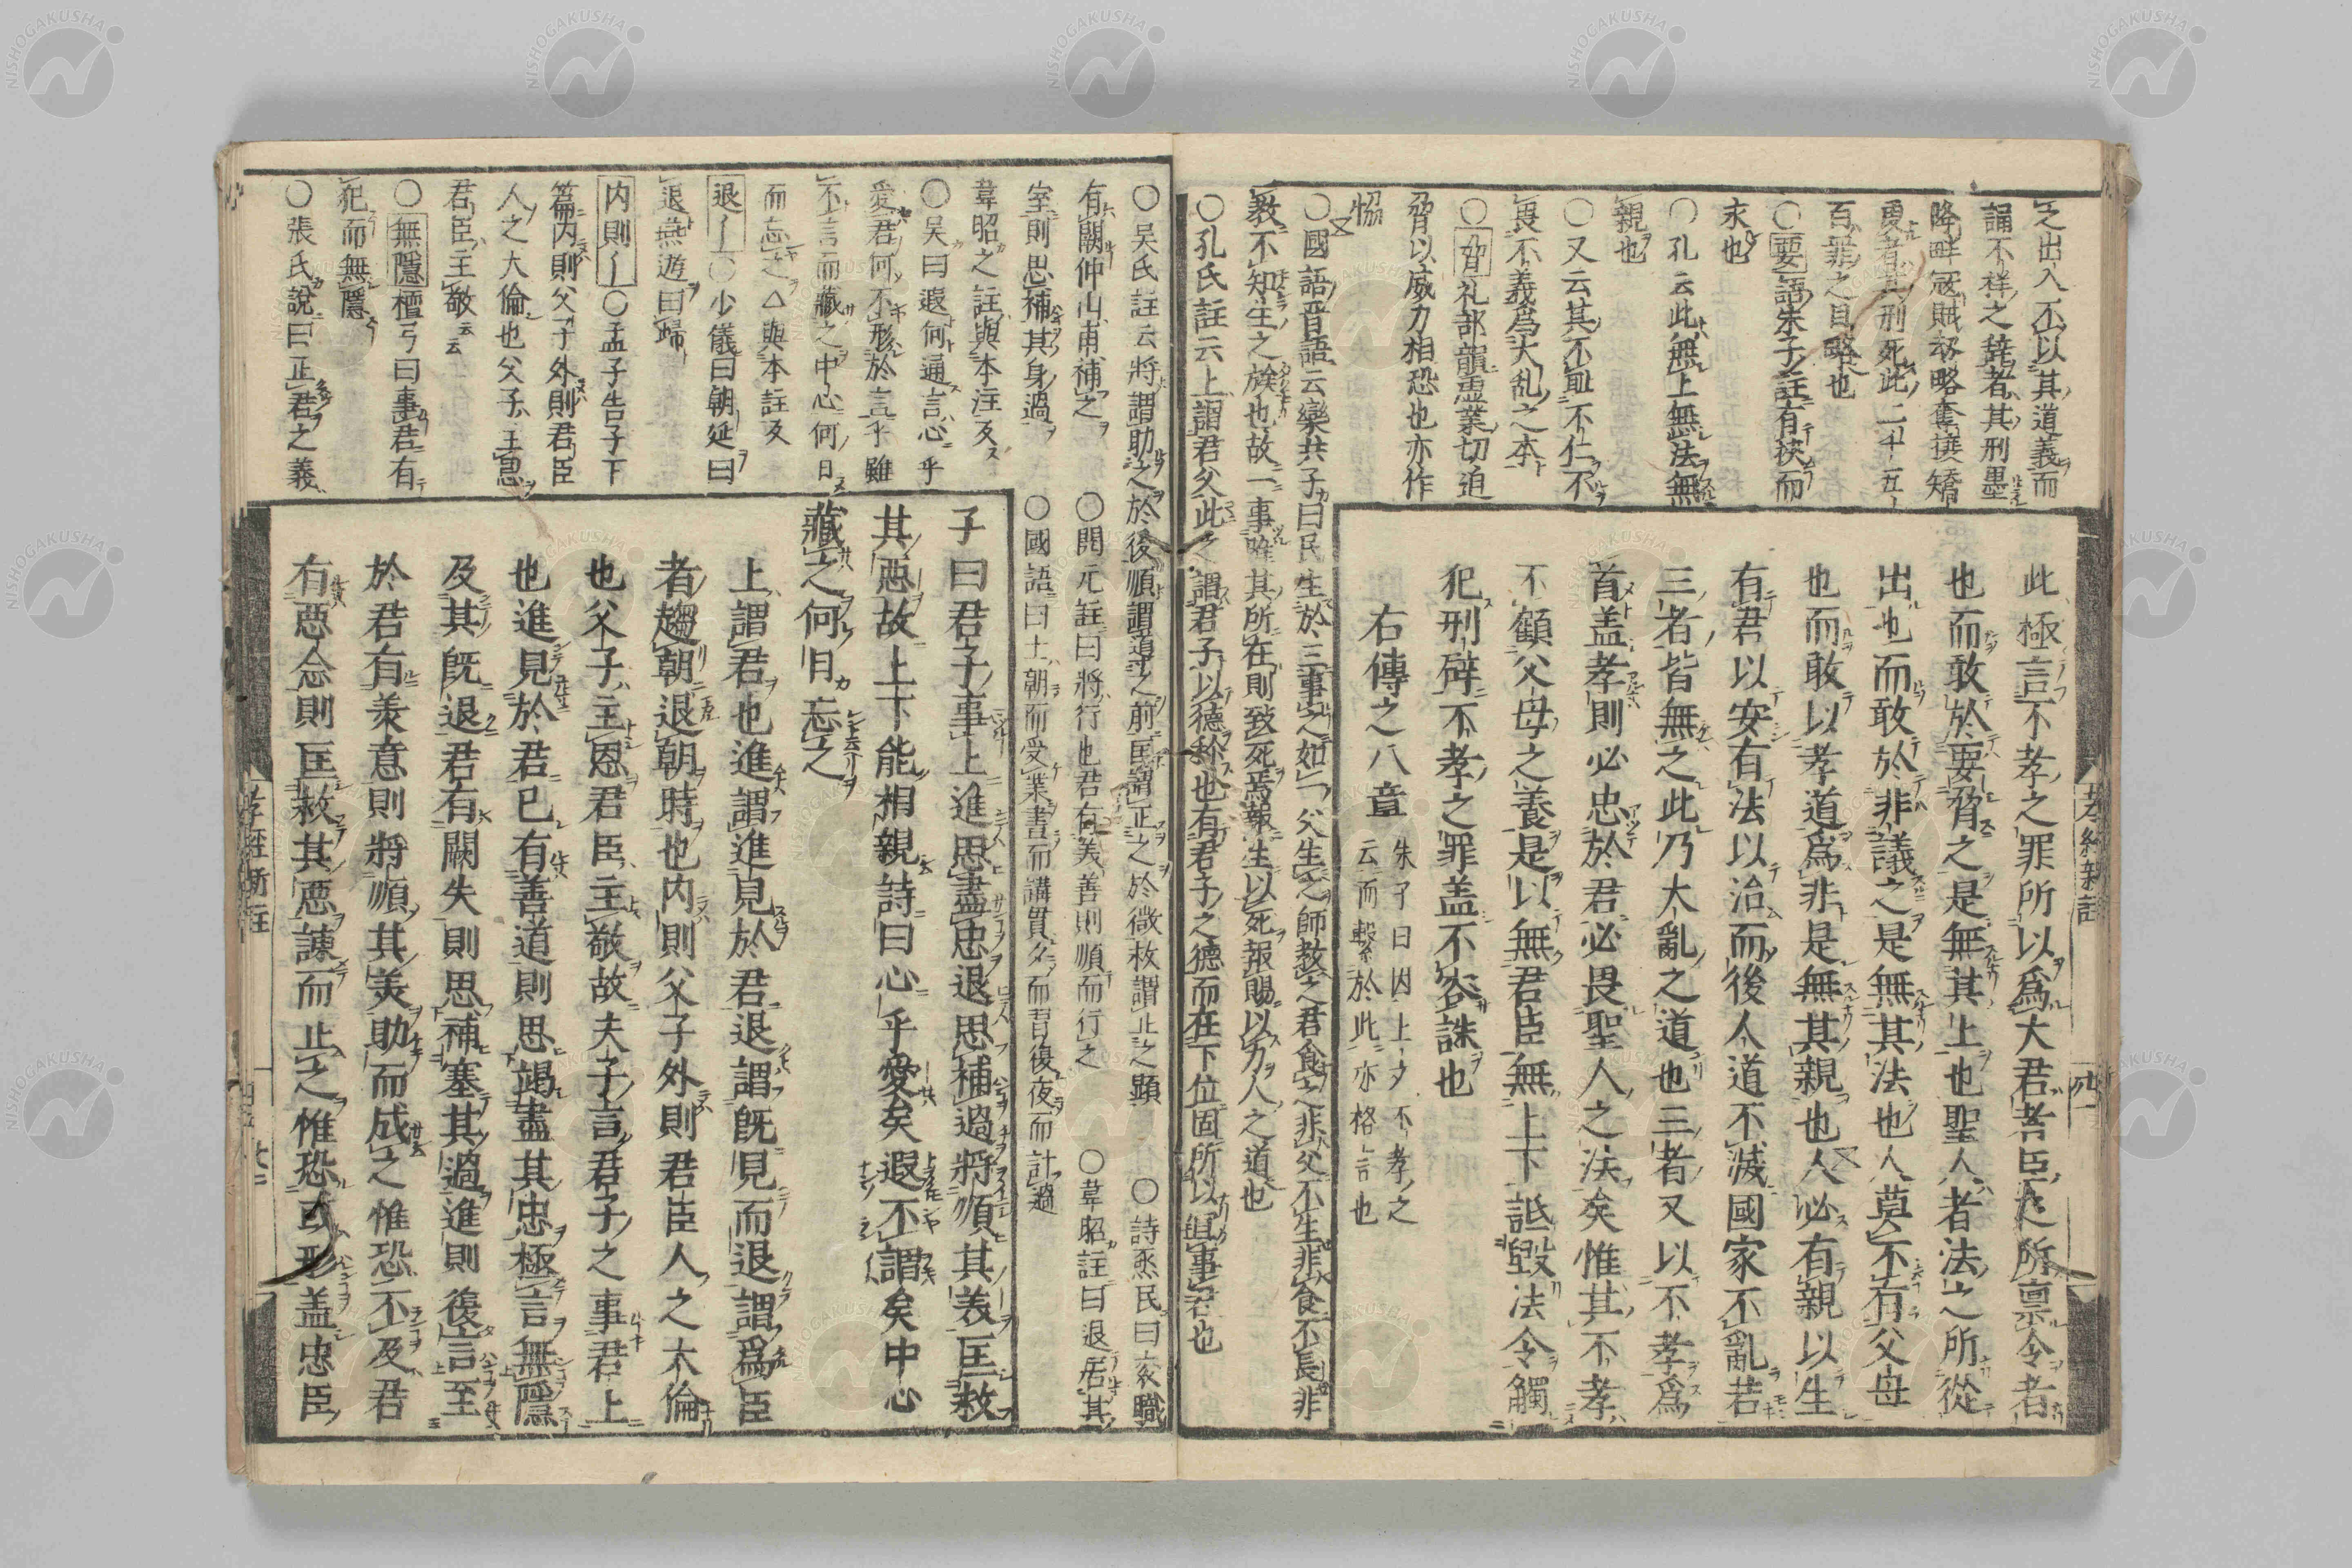 乏出入不以其道義而
誦不祥之辞者其刑墨
降畔冦賊刼略奪撲矯
䖍者其刑死此二千五
百罪之目略也
○要語朱子註有挾而
求也
○孔云此無上無法無
親也
○又云其不耻不仁不
畏不義爲大乱之本
○脅礼部韻虚業切迫
脅以威力相恐也亦作
恊
○國語晋語云欒共子曰民生於三事之如一父生之師教之君食之非父不生非食不長非
教不知生之族也故一事唯其所在則致死焉報生以死報賜以力人之道也
○孔氏註云上謂君父此之謂君子以德称也有君子之德而在下位固所以事君也
此極言不孝之罪所以爲大君者臣之所禀令者
也而敢於要脅之是無其上也聖人者法之所從
出也而敢於非議之是無其法也人莫不有父母
也而敢以孝道爲非是無其親也人必有親以生
有君以安有法以治而後人道不滅國家不亂若
三者皆無之此乃大亂之道也三者又以不孝爲
首盖孝則必忠於君必畏聖人之法矣惟其不孝
不顧父母之養是以無君臣無上下詆毀法令觸
犯刑辟不孝之罪盖不容誅也
右傳之八章
朱子曰因上文不孝之
云而繫於此亦格言也
孝經新註
○吴氏註云將謂助之於後順謂導之前匡謂正之於微救謂止之顯
○詩烝民曰衮職
有闕仲山甫補之
○開元註曰將行也君有美善則順而行之
○韋昭註曰退居其
室則思補其身過
○國語曰士朝而受業晝而講貫夕而習復夜而計過
韋昭之註與本注反
○吴曰遐何通言心乎
愛君何不形於言乎雖
不言而藏之中心何日
而忘之△與本註反
退〡○少儀曰朝廷曰
退燕遊曰歸
内則〡○孟子告子下
篇内則父子外則君臣
人之大倫也父子主恩
君臣主敬云云
○無隱檀弓曰事君有
犯而無隱
○張氏說曰正君之義
子曰君子事上進思盡忠退思補過將順其美匡救
其惡故上下能相親詩曰心乎愛矣遐不謂矣中心
藏之何日忘之
上謂君也進謂進見於君退謂既見而退謂爲臣
者趨朝退朝時也内則父子外則君臣人之大倫
也父子主恩君臣主敬故夫子言君子之事君上
也進見於君已有善道則思竭盡其忠極言無隱
及其既退君有闕失則思補塞其過進則復言至
於君有美意則將順其美助而成之惟恐不及君
有惡念則匡救其惡諫而止之惟恐或形盖忠臣
孝經新註